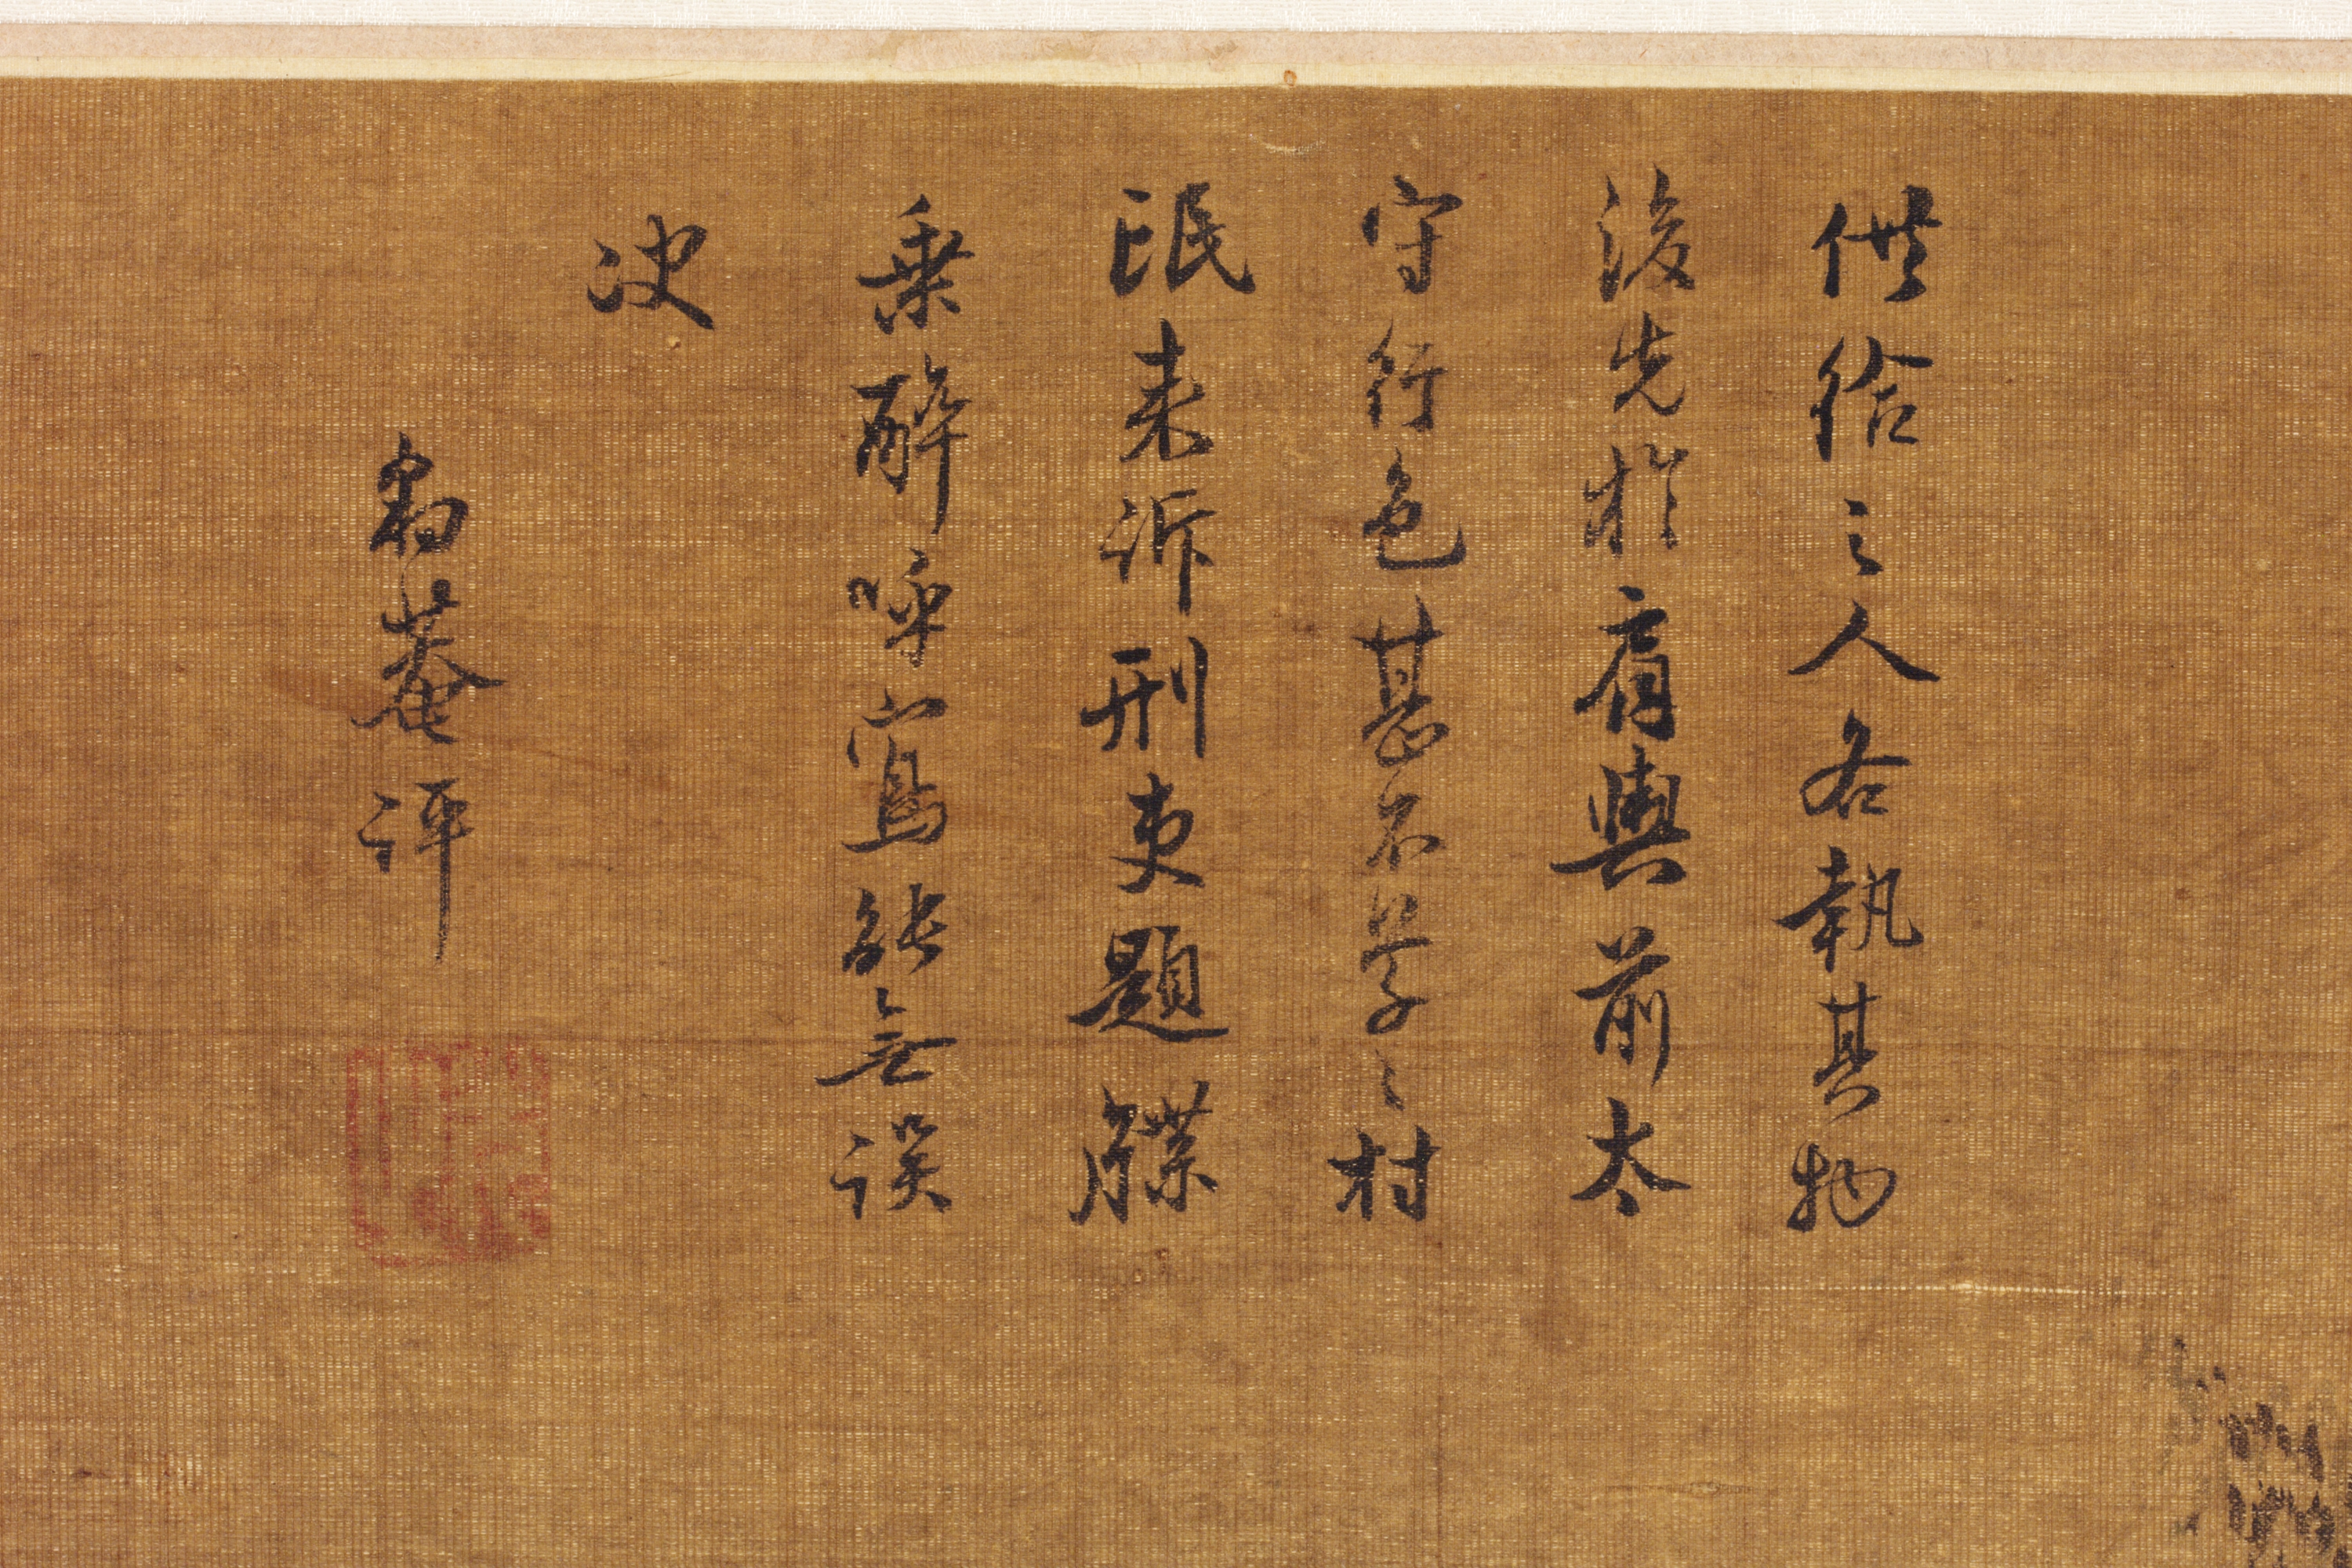 供給之人各執其物
後先於肩輿前太
守行色甚不草〻村
氓来訴刑吏題牒
乗醉呼寫能無誤
決
豹菴評